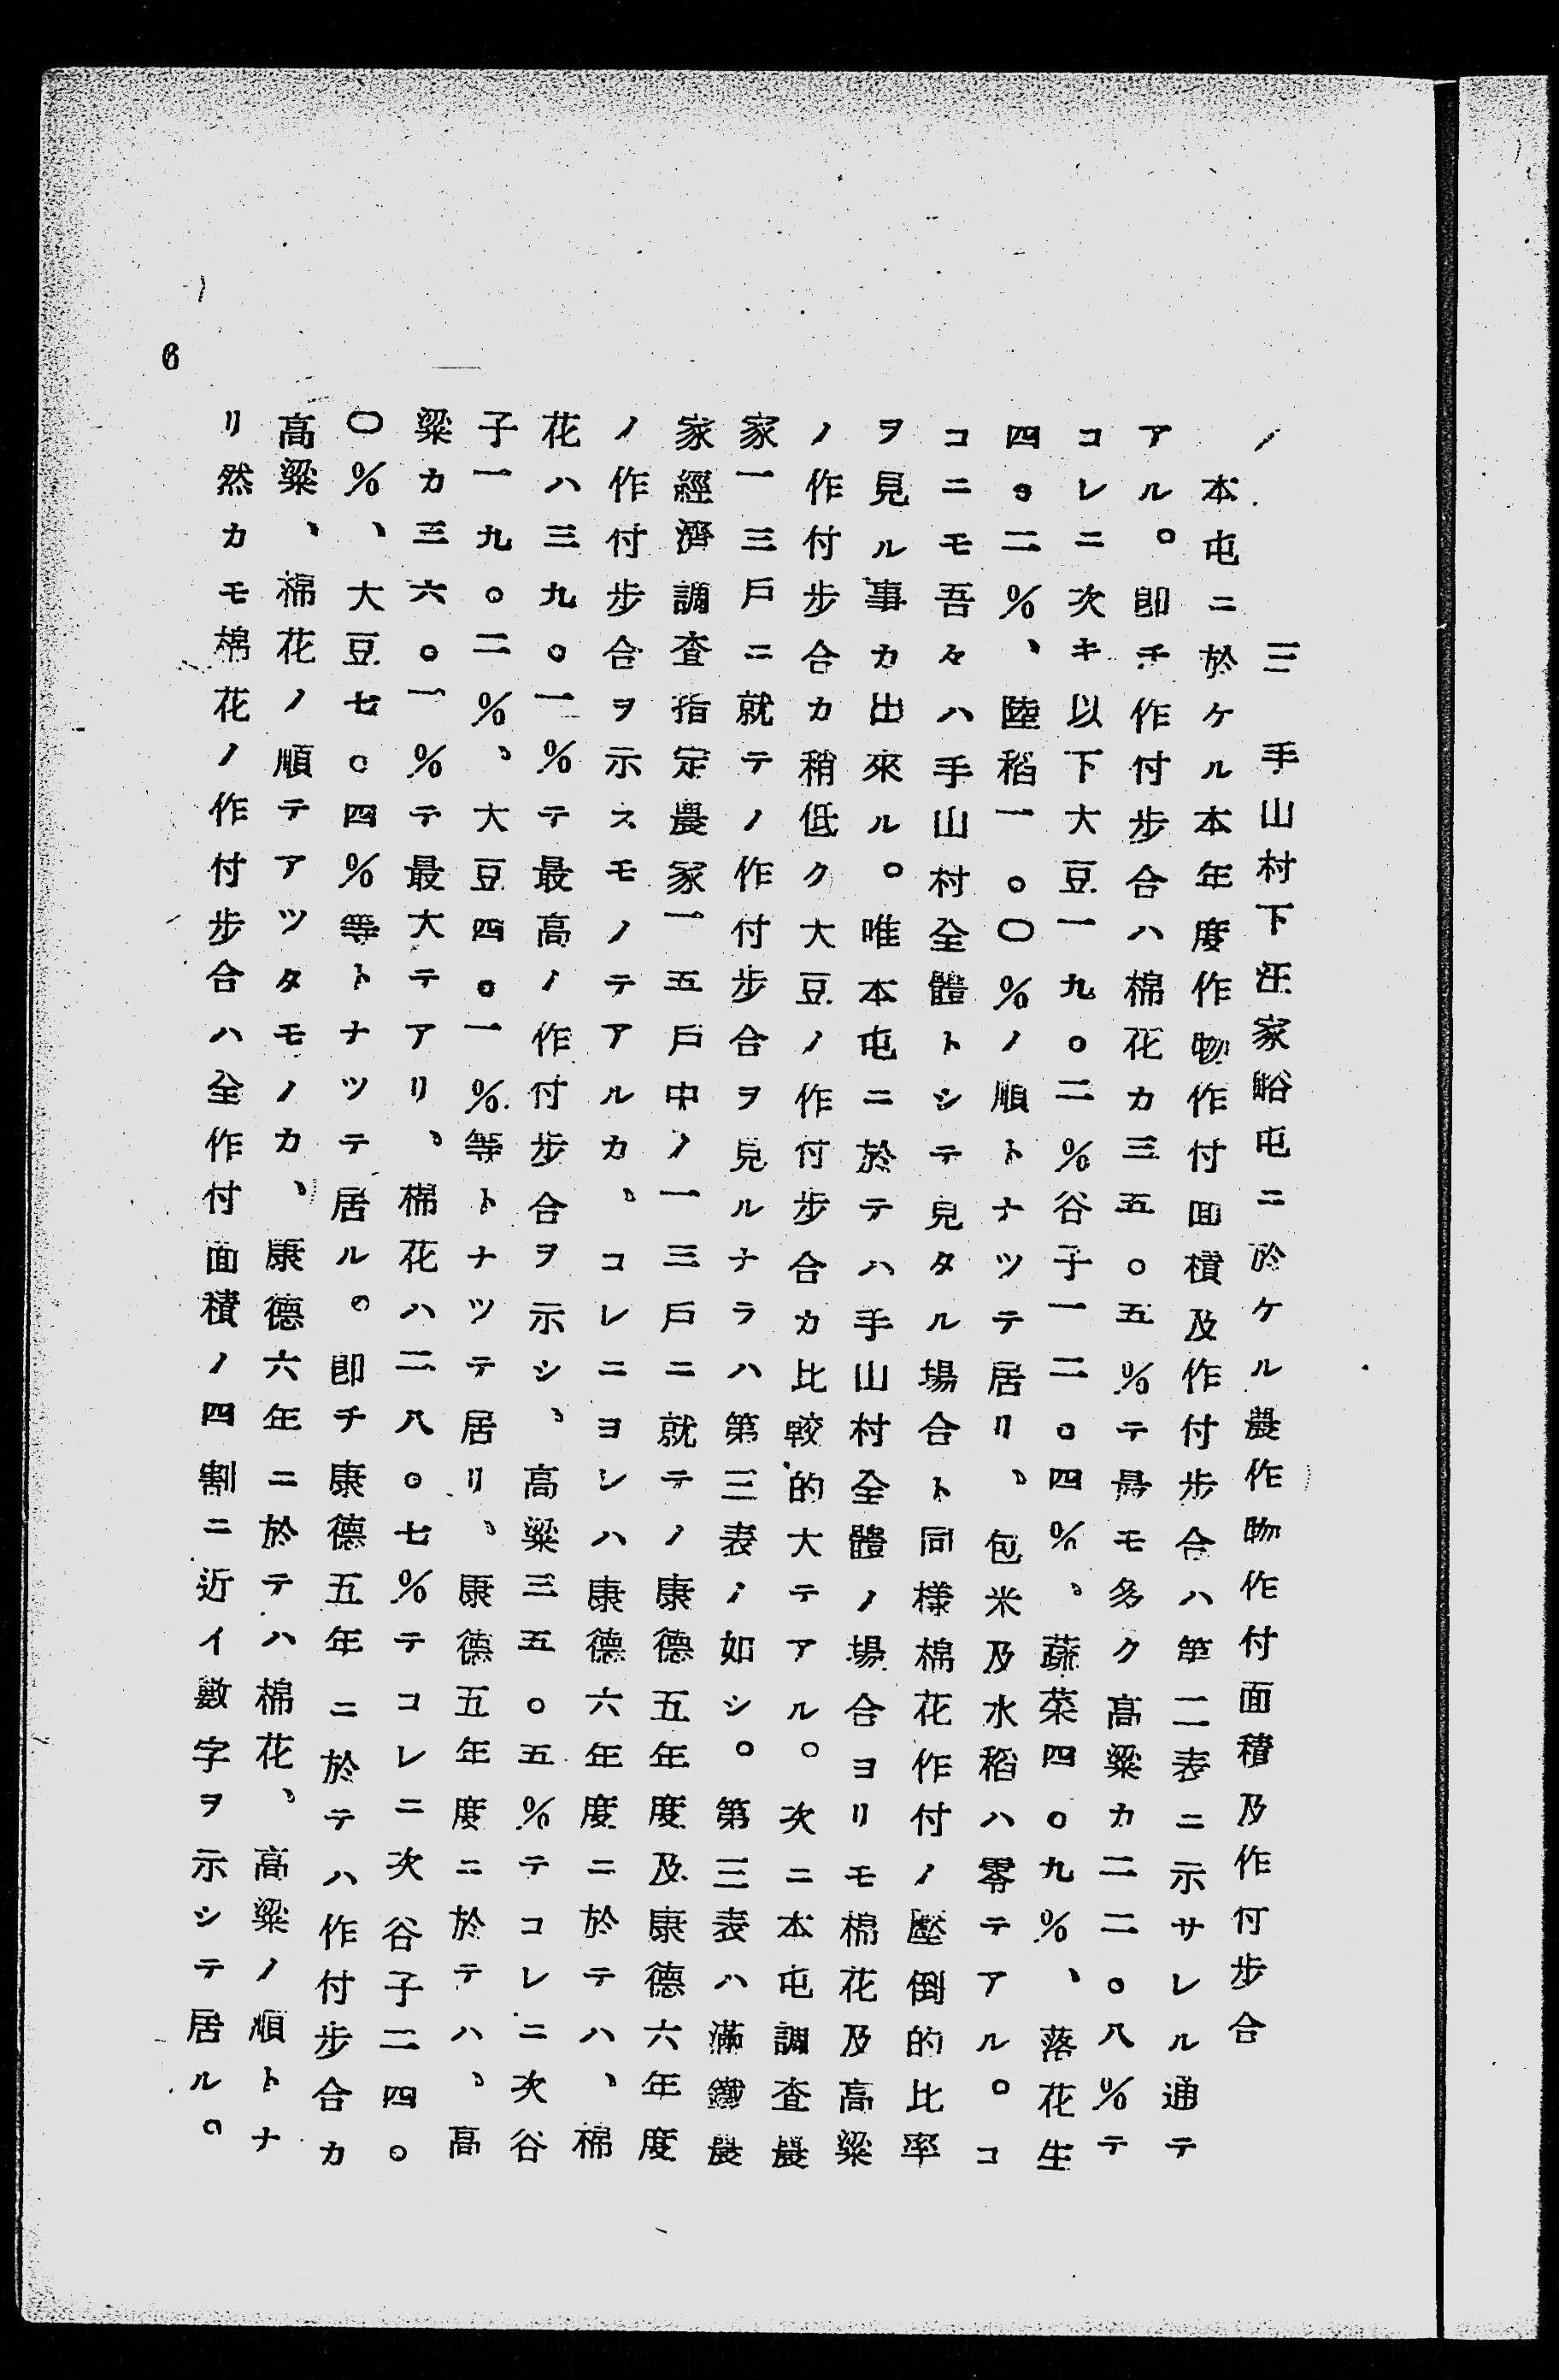 三　手山村下汪家峪屯ニ於ケル農作物作付面積及作付步合
本屯ニ於ケル本年度作物作付面積及作付步合ハ第二表ニ示サレル通テ
アル。卽チ作付步合ハ棉花カ三五。五％テ最モ多ク高粱カ二二。八％テ
コレニ次キ以下大豆一九。二％谷子一二。四％、蔬菜四。九％、落花生
四。二％、陸稻一。〇％ノ順トナツテ居リ、包米及水稻ハ零テアル。コ
コニモ吾々ハ手山村全體トシテ見タル場合ト同樣棉花作付ノ壓倒的比率
ヲ見ル事カ出來ル。唯本屯ニ於テハ手山村全體ノ場合ヨリモ棉花及高粱
ノ作付步合カ稍低ク大豆ノ作付步合カ比較的大テアル。次ニ本屯調査農
家一三戶ニ就テノ作付步合ヲ見ルナラハ第三表ノ如シ。第三表ハ滿鐵農
家經濟調査指定農家一五戶中ノ一三戶ニ就テノ康德五年度及康德六年度
ノ作付步合ヲ示スモノテアルカ、コレニヨレハ康德六年度ニ於テハ、棉
花ハ三九。一％テ最高ノ作付步合ヲ示シ、高粱三五。五％テコレニ次谷
子一九。二％、大豆四。一％等トナツテ居リ、康德五年度ニ於テハ、高
粱カ三六。一％テ最大テアリ、棉花ハ二八。七％テコレニ次谷子二四。
〇％、大豆七。四％等トナツテ居ル。卽チ康德五年ニ於テハ作付步合カ
高粱、棉花ノ順テアツタモノカ、康德六年ニ於テハ棉花、高粱ノ順トナ
リ然カモ棉花ノ作付步合ハ全作付面積ノ四割ニ近イ數字ヲ示シテ居ル。
6